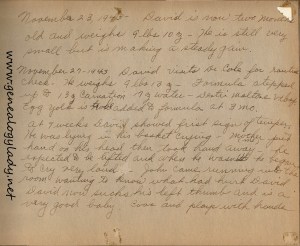 November 23, 1943 - David is now two months
old and weighs 9 lbs 10 g - He is still very
small but is making a steady gain.
November 27-1943 David visits Dr Cole for routine
check. He weighs 9 lbs 10 g - Formula stepped
up to 13 g Carnation 19 g water
Egg yolk is added to formula at 3 mo.
At 7 weeks David showed first sign of temper,
He was lying in his basket crying - Mother laid
hand on his head then took hand away - he
expected to be lifted and when he wasn't he began
to cry very loud - John came running into the
room wanting to know what had hurt David
David now sucks his left thumb and is a
very good baby - Coos and plays with hands
www.genealogylady.net